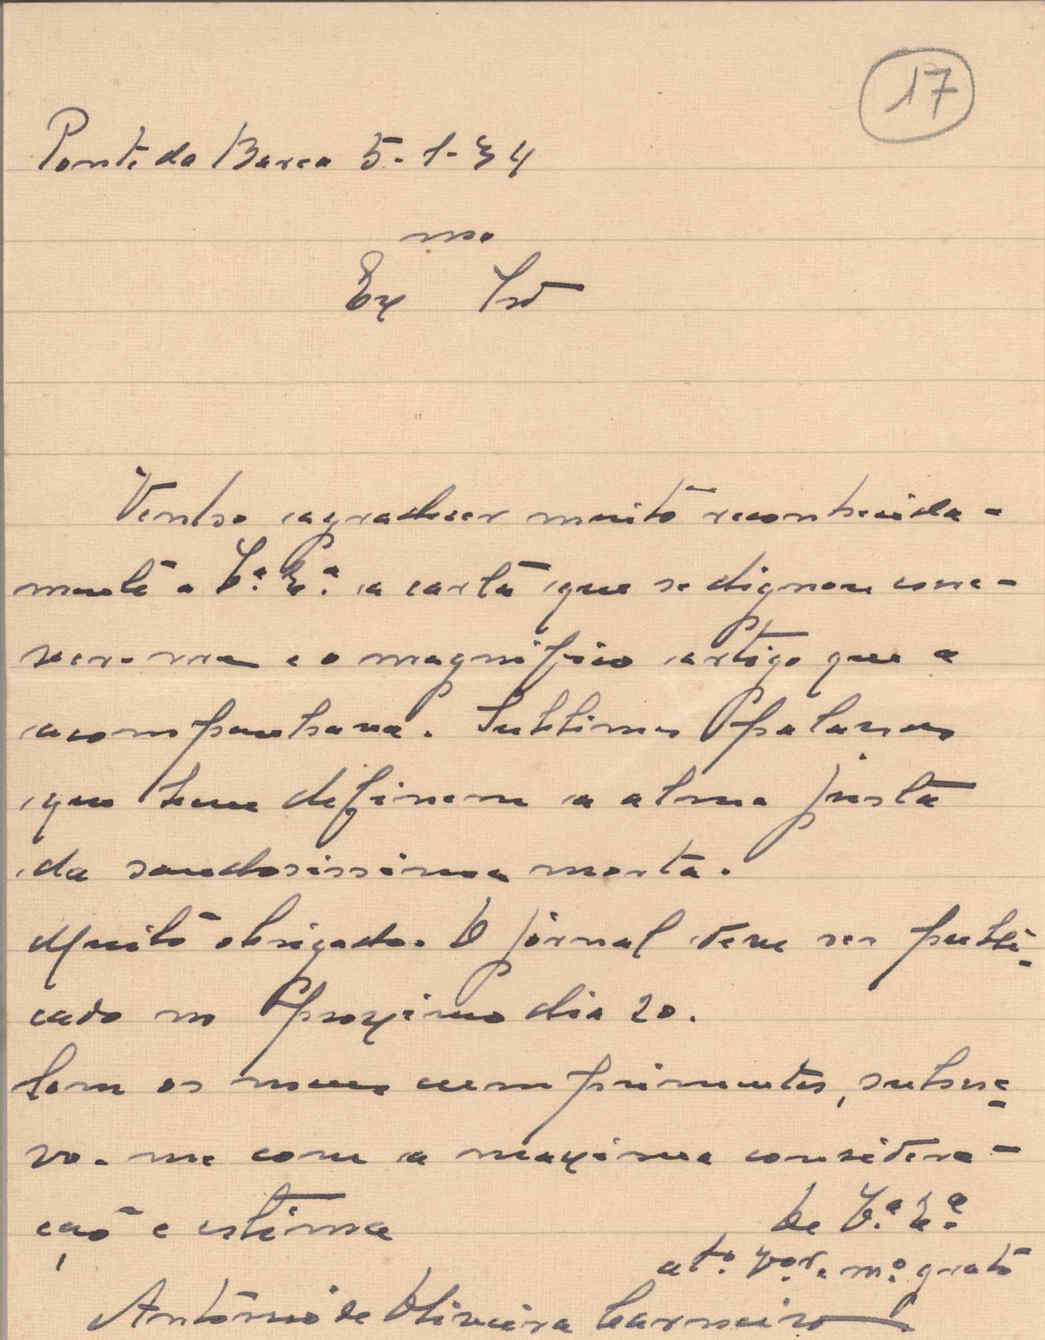 17
Ponte da Barca 5-1-34
mo
Ex Snr
Venho agradecer muito reconhecida-
mente a V.ª E.ª a carta que se dignou
e o magnifico artigo que a
acompanhava. Sublimes palavras
que bem definem a alma justa
da saudosissima morta.
Muito obrigado. O jornal deve ser publi-
cado no proximo dia 20.
Com os meus cumprimentos, subscre-
vo-me com a maxima considera-
ção e estima
De V.ª E.ª
at.º V.or e m.º grato
António de Oliveira Carneiro